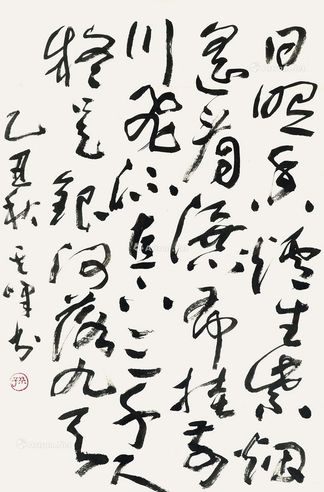 日照香炉生紫烟
遥看瀑布挂前
川飞流直下三千尺
疑是银河落九天
乙丑秋其峰书